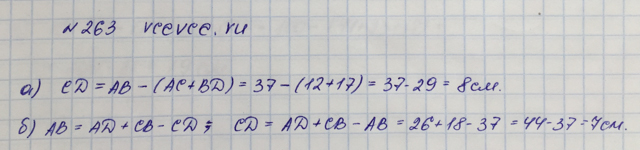 № 263 vcevce.ru
а) CD = AB - (AC + BD) = 37 - (12 + 17) = 37 - 29 = 8 см.
б) AB = AD + CB - CD; CD = AD + CB - AB = 26 + 18 - 37 = 44 - 37 = 7 см.